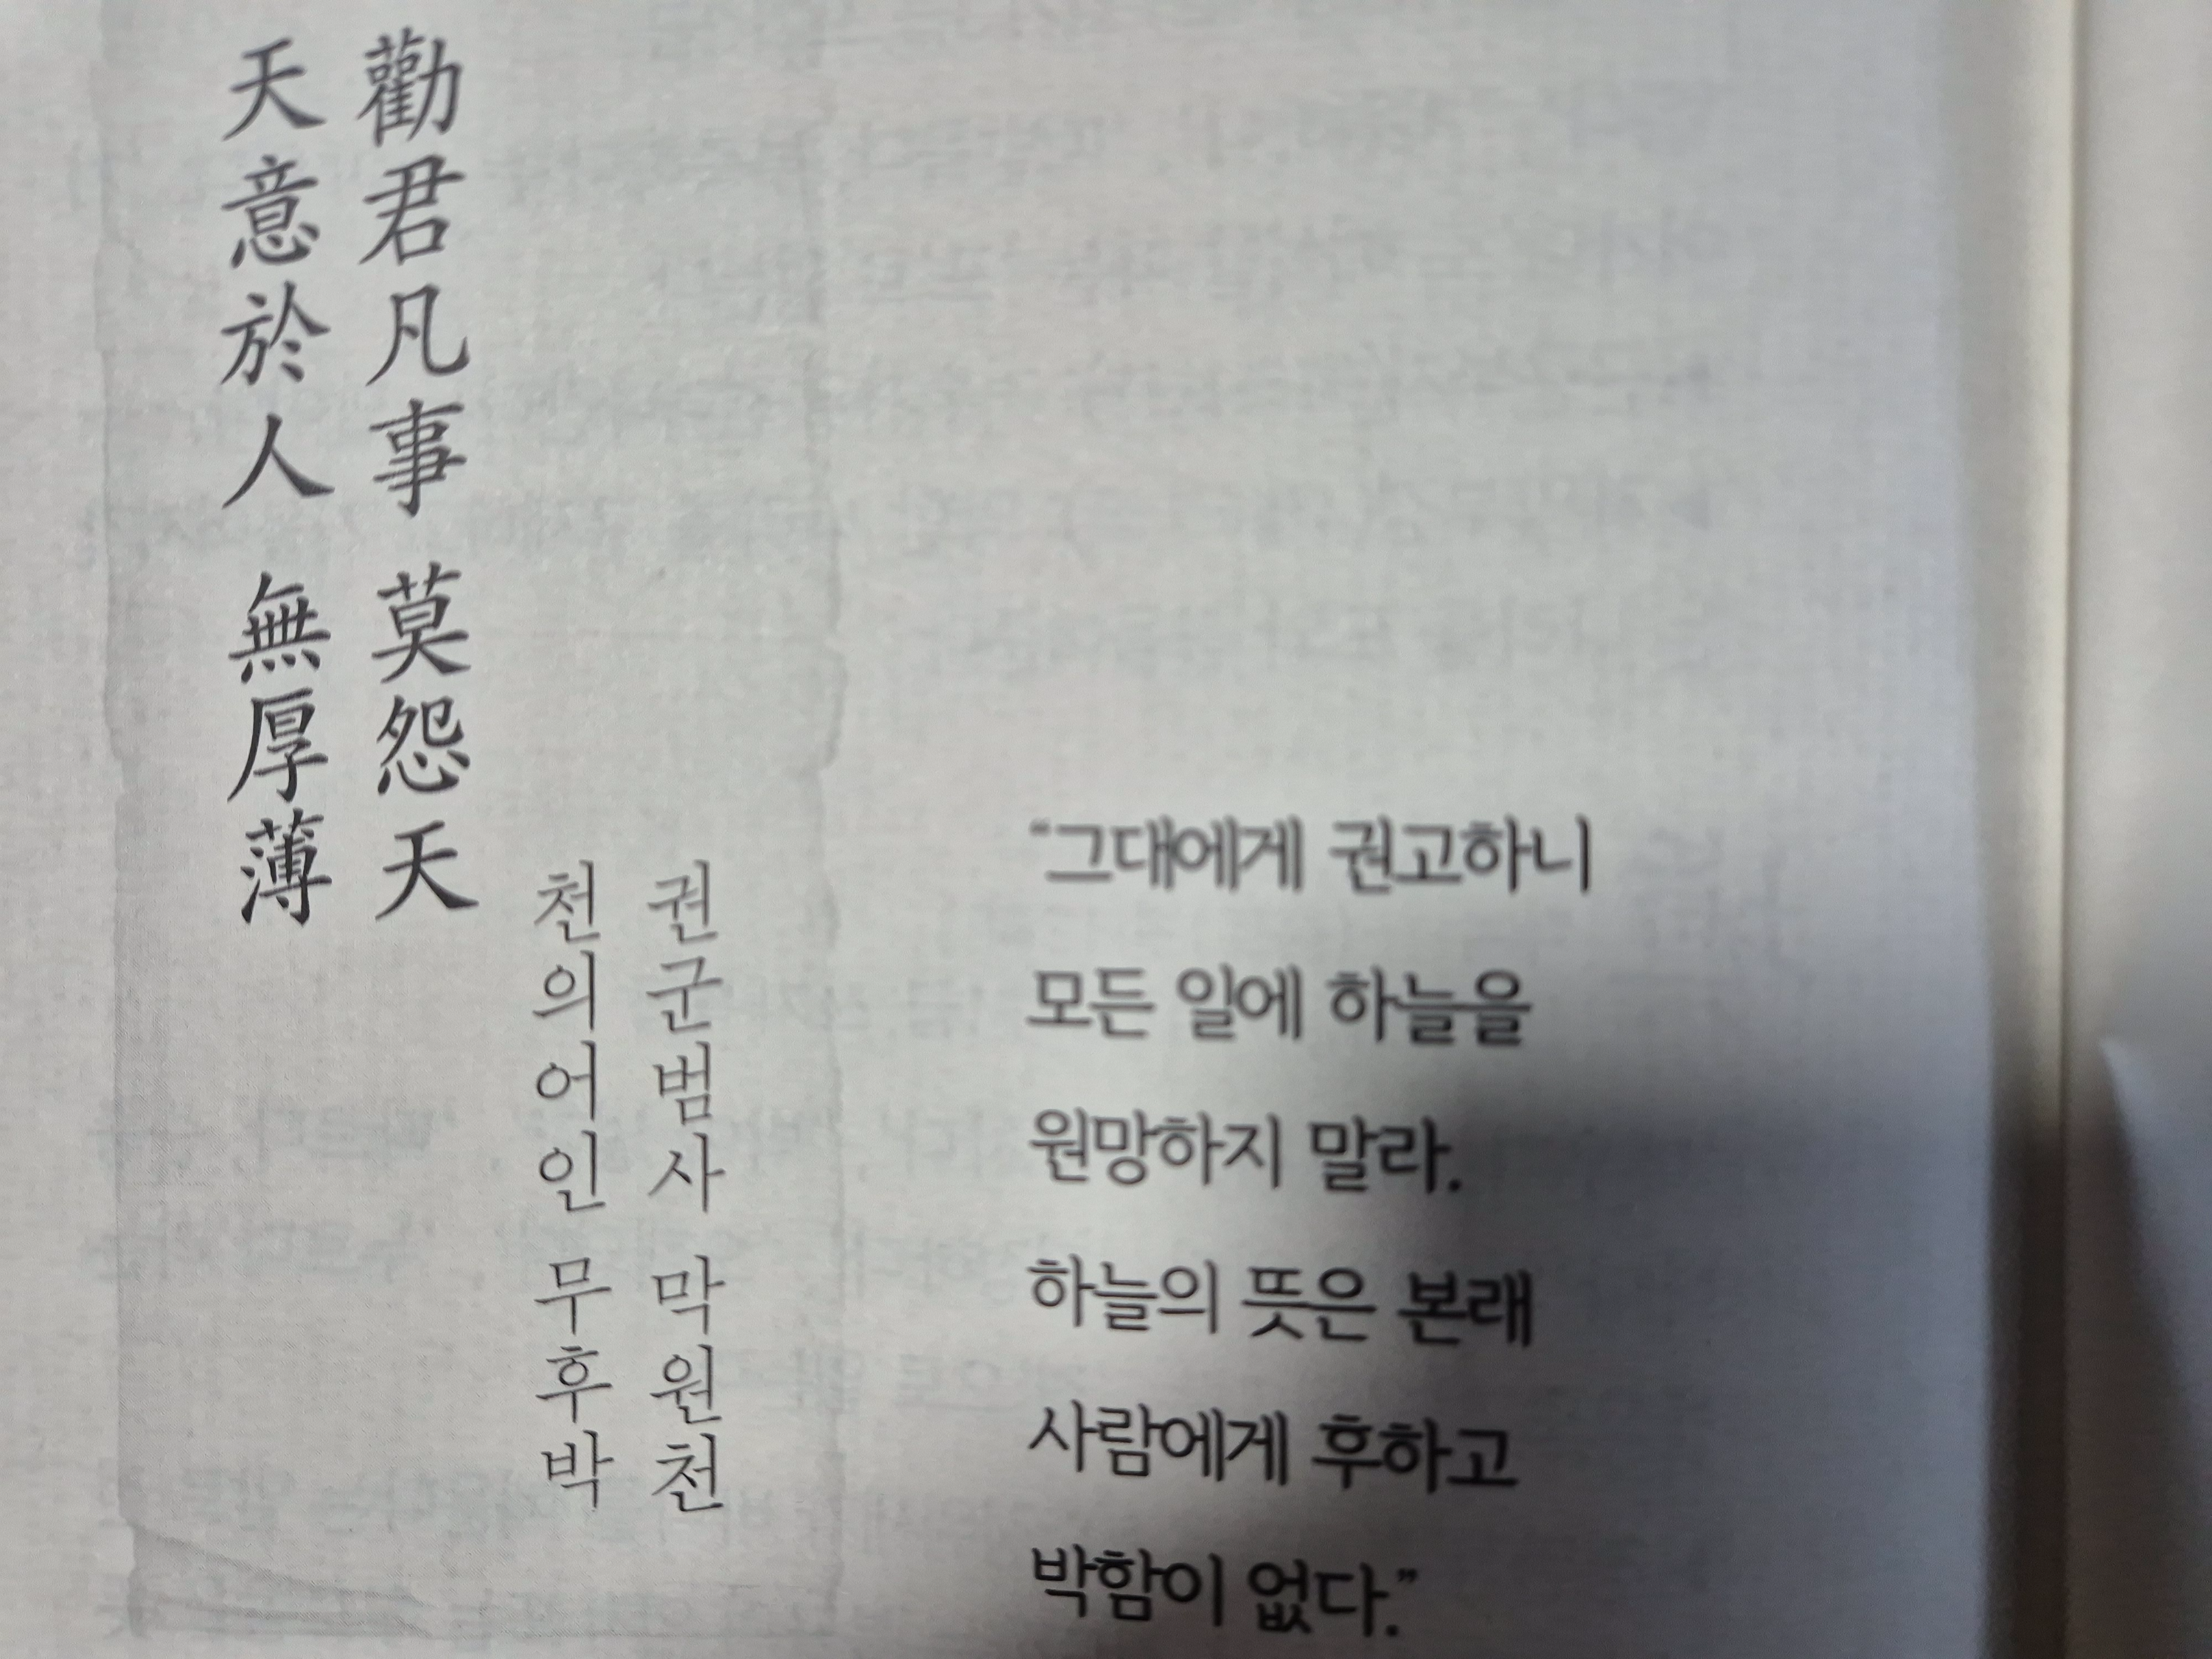 勸君凡事 莫怨天
天意於人 無厚薄
권군범사 막원천
천의어인 무후박
“그대에게 권고하니
모든 일에 하늘을
원망하지 말라.
하늘의 뜻은 본래
사람에게 후하고
박함이 없다.”